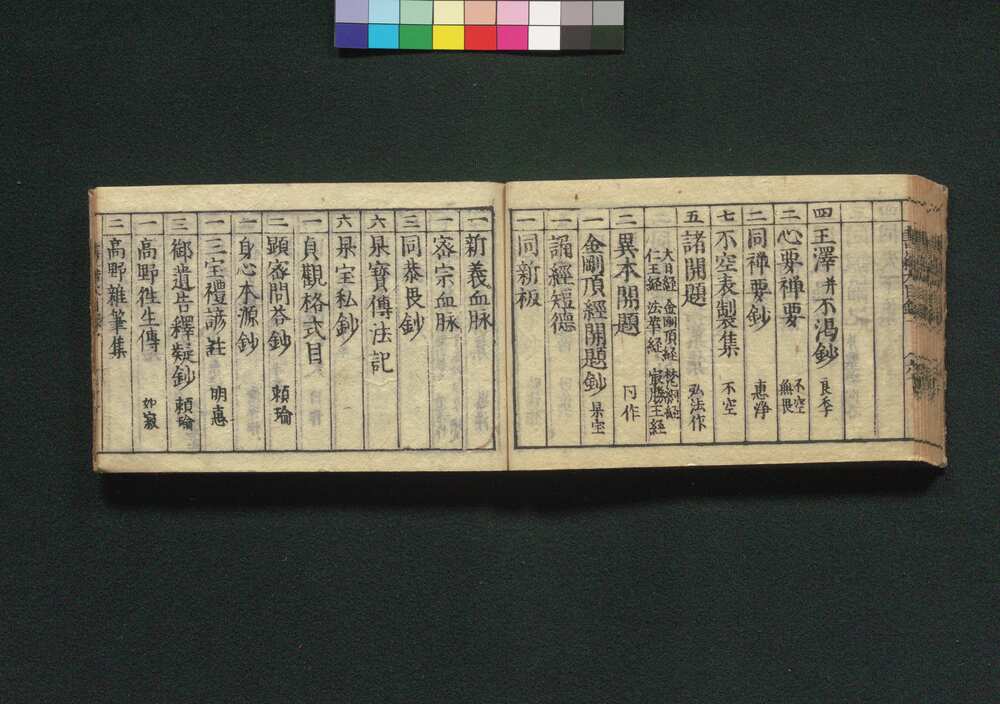 四 玉澤并不渇鈔 良季
二 心要禅要 不空 無畏
二 同禅要鈔 惠浄
七 不空表製集 不空
五 諸開題 弘法作
大日経 金剛頂経 梵網経
仁王経 法華経 最勝王経
二 異本開題 同作
一 金剛頂經開題鈔 杲宝
一 誦經短德
一 同新板
一 新義血脉
一 密宗血脉
三 同恭畏鈔
六 杲寳傳法記
六 杲宝私鈔
一 貞觀格式目
二 顕密問荅鈔 頼瑜
一 身心本源鈔
一 三宝禮諺註 明惠
三 御遺告釋疑鈔 頼瑜
一 高野徃生傳 如寂
二 高野雑筆集